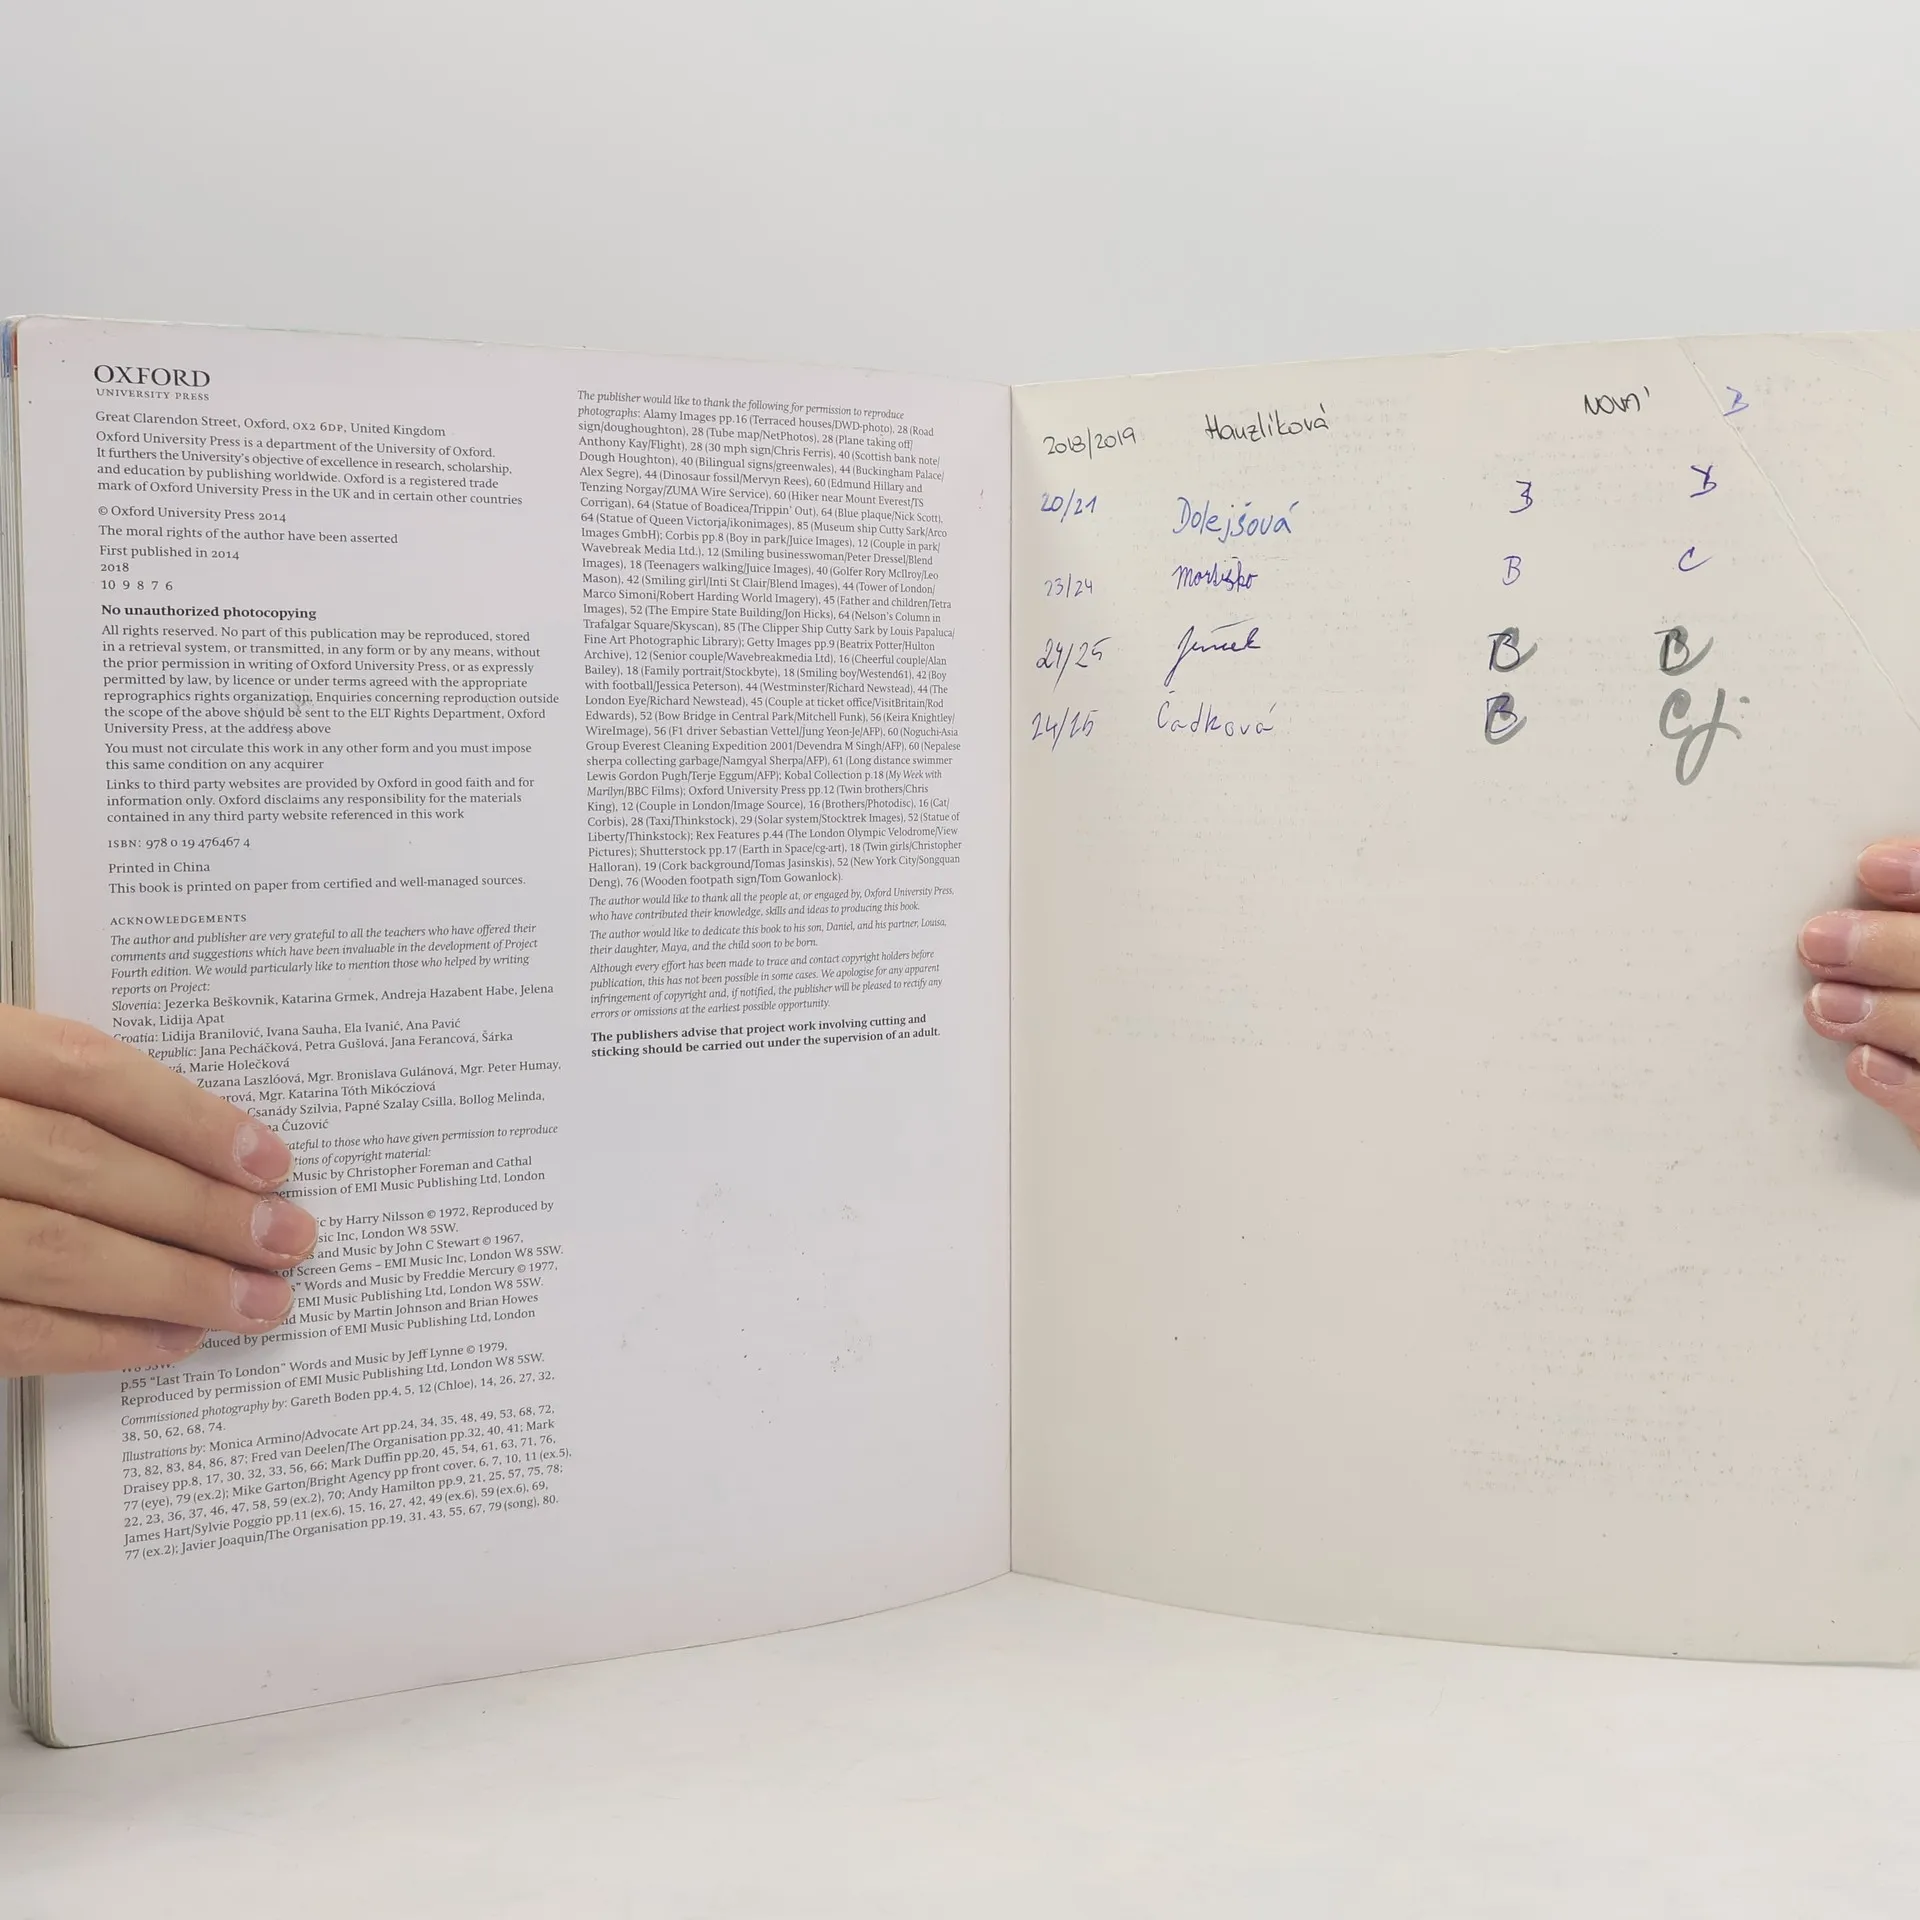 OXFORD
UNIVERSITY PRESS
Great Clarendon Street, Oxford, OX2 6DP, United Kingdom
Oxford University Press is a department of the University of Oxford.
It furthers the University's objective of excellence in research, scholarship,
and education by publishing worldwide. Oxford is a registered trade
mark of Oxford University Press in the UK and in certain other countries
© Oxford University Press 2014
The moral rights of the author have been asserted
First published in 2014
2018
10 9 8 7 6
No unauthorized photocopying
All rights reserved. No part of this publication may be reproduced, stored
in a retrieval system, or transmitted, in any form or by any means, without
the prior permission in writing of Oxford University Press, or as expressly
permitted by law, by licence or under terms agreed with the appropriate
reprographics rights organization. Enquiries concerning reproduction outside
the scope of the above should be sent to the ELT Rights Department, Oxford
University Press, at the address above
You must not circulate this work in any other form and you must impose
this same condition on any acquirer
Links to third party websites are provided by Oxford in good faith and for
information only. Oxford disclaims any responsibility for the materials
contained in any third party website referenced in this work
ISBN: 978 0 19 476467 4
Printed in China
This book is printed on paper from certified and well-managed sources.
ACKNOWLEDGEMENTS
The author and publisher are very grateful to all the teachers who have offered their
comments and suggestions which have been invaluable in the development of Project
Fourth edition. We would particularly like to mention those who helped by writing
reports on Project:
Slovenia: Jezerka Beškovnik, Katarina Grmek, Andreja Hazabent Habe, Jelena
Novak, Lidija Apat
Croatia: Lidija Branilović, Ivana Sauha, Ela Ivanić, Ana Pavić
Republic: Jana Pecháčková, Petra Gušlová, Jana Ferancová, Šárka
vá, Marie Holečková
Zuzana Laszlóová, Mgr. Bronislava Gulánová, Mgr. Peter Humay,
erová, Mgr. Katarina Tóth Mikócziová
Csanády Szilvia, Papné Szalay Csilla, Bollog Melinda,
na Ćuzović
rateful to those who have given permission to reproduce
tions of copyright material:
Music by Christopher Foreman and Cathal
ermission of EMI Music Publishing Ltd, London
ic by Harry Nilsson © 1972, Reproduced by
sic Inc, London W8 5SW.
s and Music by John C Stewart © 1967,
of Screen Gems – EMI Music Inc, London W8 5SW.
s" Words and Music by Freddie Mercury © 1977,
EMI Music Publishing Ltd, London W8 5SW.
nd Music by Martin Johnson and Brian Howes
oduced by permission of EMI Music Publishing Ltd, London
W8 5SW.
p.55 "Last Train To London" Words and Music by Jeff Lynne © 1979,
Reproduced by permission of EMI Music Publishing Ltd, London W8 5SW.
Commissioned photography by: Gareth Boden pp.4, 5, 12 (Chloe), 14, 26, 27, 32,
38, 50, 62, 68, 74.
Illustrations by: Monica Armino/Advocate Art pp.24, 34, 35, 48, 49, 53, 68, 72,
73, 82, 83, 84, 86, 87; Fred van Deelen/The Organisation pp.32, 40, 41; Mark
Draisey pp.8, 17, 30, 32, 33, 56, 66; Mark Duffin pp.20, 45, 54, 61, 63, 71, 76,
77 (eye), 79 (ex.2); Mike Garton/Bright Agency pp front cover, 6, 7, 10, 11 (ex.5),
22, 23, 36, 37, 46, 47, 58, 59 (ex.2), 70; Andy Hamilton pp.9, 21, 25, 57, 75, 78;
James Hart/Sylvie Poggio pp.11 (ex.6), 15, 16, 27, 42, 49 (ex.6), 59 (ex.6), 69,
77 (ex.2); Javier Joaquin/The Organisation pp.19, 31, 43, 55, 67, 79 (song), 80.
The publisher would like to thank the following for permission to reproduce
photographs: Alamy Images pp.16 (Terraced houses/DWD-photo), 28 (Road
sign/doughoughton), 28 (Tube map/NetPhotos), 28 (Plane taking off/
Anthony Kay/Flight), 28 (30 mph sign/Chris Ferris), 40 (Scottish bank note/
Dough Houghton), 40 (Bilingual signs/greenwales), 44 (Buckingham Palace/
Alex Segre), 44 (Dinosaur fossil/Mervyn Rees), 60 (Edmund Hillary and
Tenzing Norgay/ZUMA Wire Service), 60 (Hiker near Mount Everest/TS
Corrigan), 64 (Statue of Boadicea/Trippin' Out), 64 (Blue plaque/Nick Scott),
64 (Statue of Queen Victorja/ikonimages), 85 (Museum ship Cutty Sark/Arco
Images GmbH); Corbis pp.8 (Boy in park/Juice Images), 12 (Couple in park/
Wavebreak Media Ltd.), 12 (Smiling businesswoman/Peter Dressel/Blend
Images), 18 (Teenagers walking/Juice Images), 40 (Golfer Rory McIlroy/Leo
Mason), 42 (Smiling girl/Inti St Clair/Blend Images), 44 (Tower of London/
Marco Simoni/Robert Harding World Imagery), 45 (Father and children/Tetra
Images), 52 (The Empire State Building/Jon Hicks), 64 (Nelson's Column in
Trafalgar Square/Skyscan), 85 (The Clipper Ship Cutty Sark by Louis Papaluca/
Fine Art Photographic Library); Getty Images pp.9 (Beatrix Potter/Hulton
Archive), 12 (Senior couple/Wavebreakmedia Ltd), 16 (Cheerful couple/Alan
Bailey), 18 (Family portrait/Stockbyte), 18 (Smiling boy/Westend61), 42 (Boy
with football/Jessica Peterson), 44 (Westminster/Richard Newstead), 44 (The
London Eye/Richard Newstead), 45 (Couple at ticket office/VisitBritain/Rod
Edwards), 52 (Bow Bridge in Central Park/Mitchell Funk), 56 (Keira Knightley/
WireImage), 56 (F1 driver Sebastian Vettel/Jung Yeon-Je/AFP), 60 (Noguchi-Asia
Group Everest Cleaning Expedition 2001/Devendra M Singh/AFP), 60 (Nepalese
sherpa collecting garbage/Namgyal Sherpa/AFP), 61 (Long distance swimmer
Lewis Gordon Pugh/Terje Eggum/AFP); Kobal Collection p.18 (My Week with
Marilyn/BBC Films); Oxford University Press pp.12 (Twin brothers/Chris
King), 12 (Couple in London/Image Source), 16 (Brothers/Photodisc), 16 (Cat/
Corbis), 28 (Taxi/Thinkstock), 29 (Solar system/Stocktrek Images), 52 (Statue of
Liberty/Thinkstock); Rex Features p.44 (The London Olympic Velodrome/View
Pictures); Shutterstock pp.17 (Earth in Space/cg-art), 18 (Twin girls/Christopher
Halloran), 19 (Cork background/Tomas Jasinskis), 52 (New York City/Songquan
Deng), 76 (Wooden footpath sign/Tom Gowanlock).
The author would like to thank all the people at, or engaged by, Oxford University Press,
who have contributed their knowledge, skills and ideas to producing this book.
The author would like to dedicate this book to his son, Daniel, and his partner, Louisa,
their daughter, Maya, and the child soon to be born.
Although every effort has been made to trace and contact copyright holders before
publication, this has not been possible in some cases. We apologise for any apparent
infringement of copyright and, if notified, the publisher will be pleased to rectify any
errors or omissions at the earliest possible opportunity.
The publishers advise that project work involving cutting and
sticking should be carried out under the supervision of an adult.
2018/2019 Hauzlíková NOVÁ B
20/21 Dolejšová B
23/24 B C
24/25 B B
24/25 Čadková B